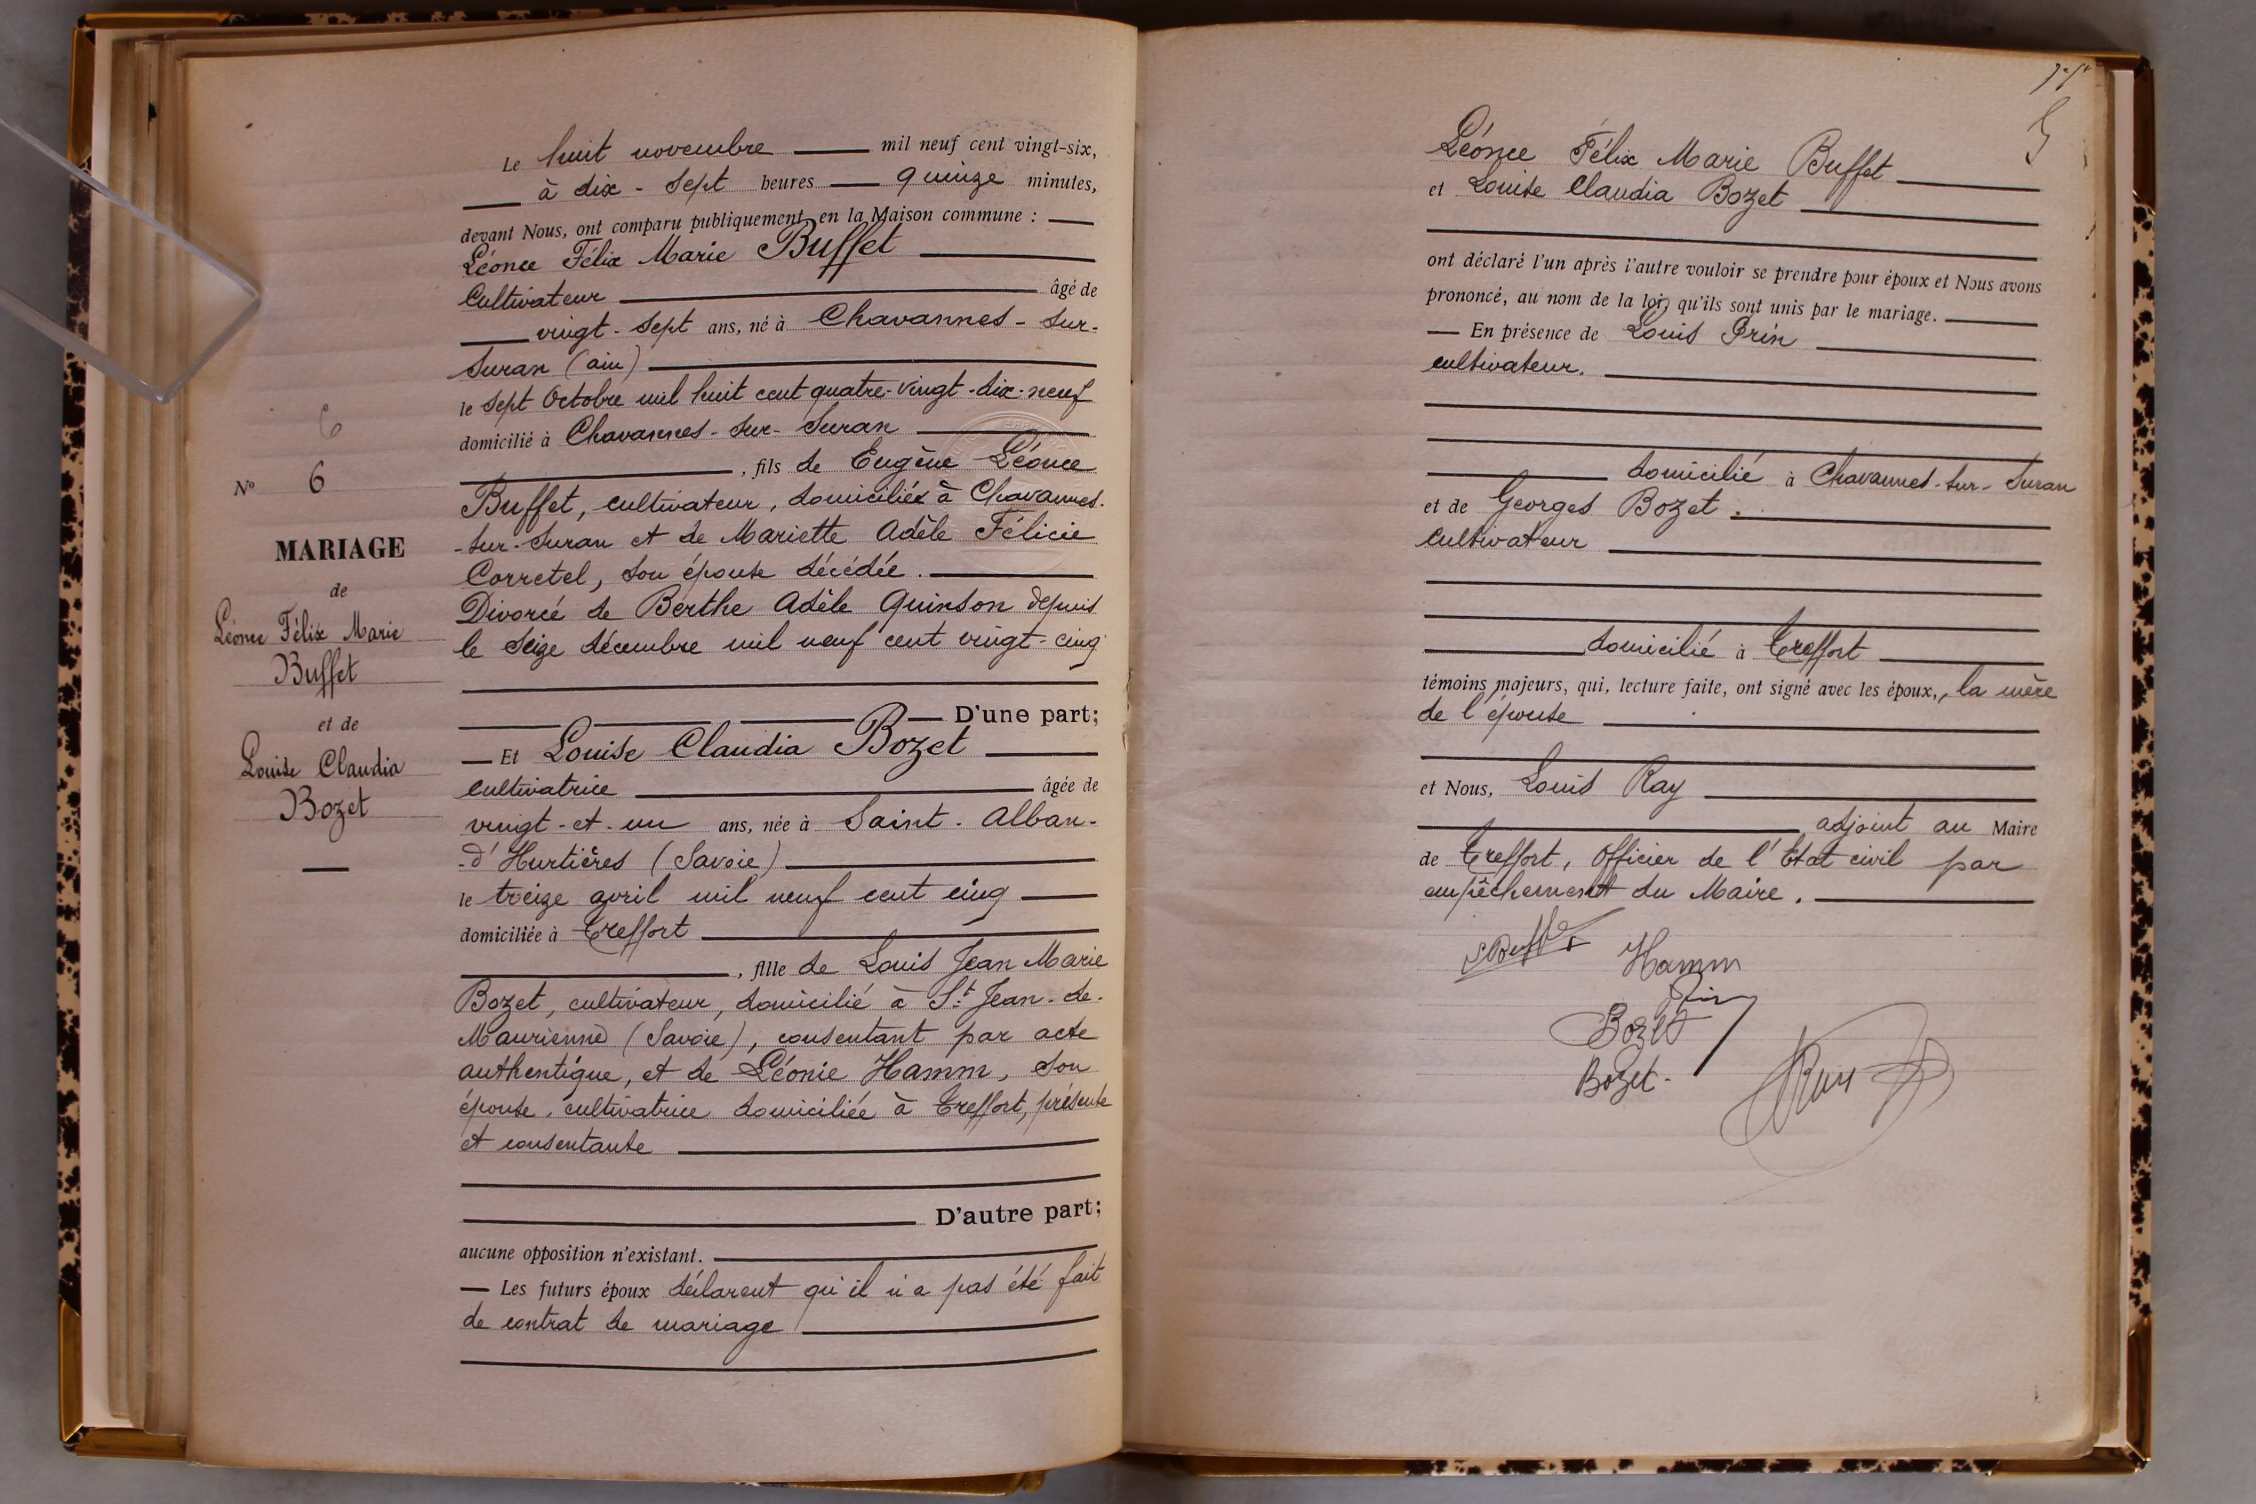 Le huit novembre mil neuf cent vingt-six,
à dix-sept heures quinze minutes,
devant Nous, ont comparu publiquement en la Maison commune :
Léonce Félix Marie Buffet
Cultivateur âgé de
vingt-sept ans, né à Chavannes-sur-
Suran (ain)
le sept Octobre mil huit cent quatre-vingt-dix-neuf
domicilié à Chavannes-sur-Suran
, fils de Eugène Léonce
Buffet, cultivateur, domicilié à Chavannes-
-sur-Suran et de Mariette Adèle Félicie
Corretel, son épouse décédée.
Divorcé de Berthe Adèle Quinson depuis
le seize décembre mil neuf cent vingt-cinq
D'une part;
Et Louise Claudia Bozet
cultivatrice âgée de
vingt-et-un ans, née à Saint-Alban-
-d'Hurtières (Savoie)
le treize avril mil neuf cent cinq
domiciliée à Treffort
, fille de Louis Jean Marie
Bozet, cultivateur, domicilié à St Jean-de-
Maurienne (Savoie), consentant par acte
authentique, et de Léonie Hamm, son
épouse, cultivatrice domiciliée à Treffort, présente
et consentante
D'autre part;
aucune opposition n'existant.
Les futurs époux déclarent qu'il n'a pas été fait
de contrat de mariage
6
No 6
MARIAGE
de
Léonce Félix Marie
Buffet
et de
Louise Claudia
Bozet
Léonce Félix Marie Buffet
et Louise Claudia Bozet
ont déclaré l'un après l'autre vouloir se prendre pour époux et Nous avons
prononcé, au nom de la loi, qu'ils sont unis par le mariage.
En présence de Louis Prin
cultivateur.
domicilié à Chavannes-sur-Suran
et de Georges Bozet.
Cultivateur
domicilié à Treffort
témoins majeurs, qui, lecture faite, ont signé avec les époux, la mère
de l'épouse
et Nous, Louis Ray
adjoint au Maire
de Treffort, Officier de l'Etat civil par
empêchement du Maire.
Hamm
Prin
Bozet
Bozet